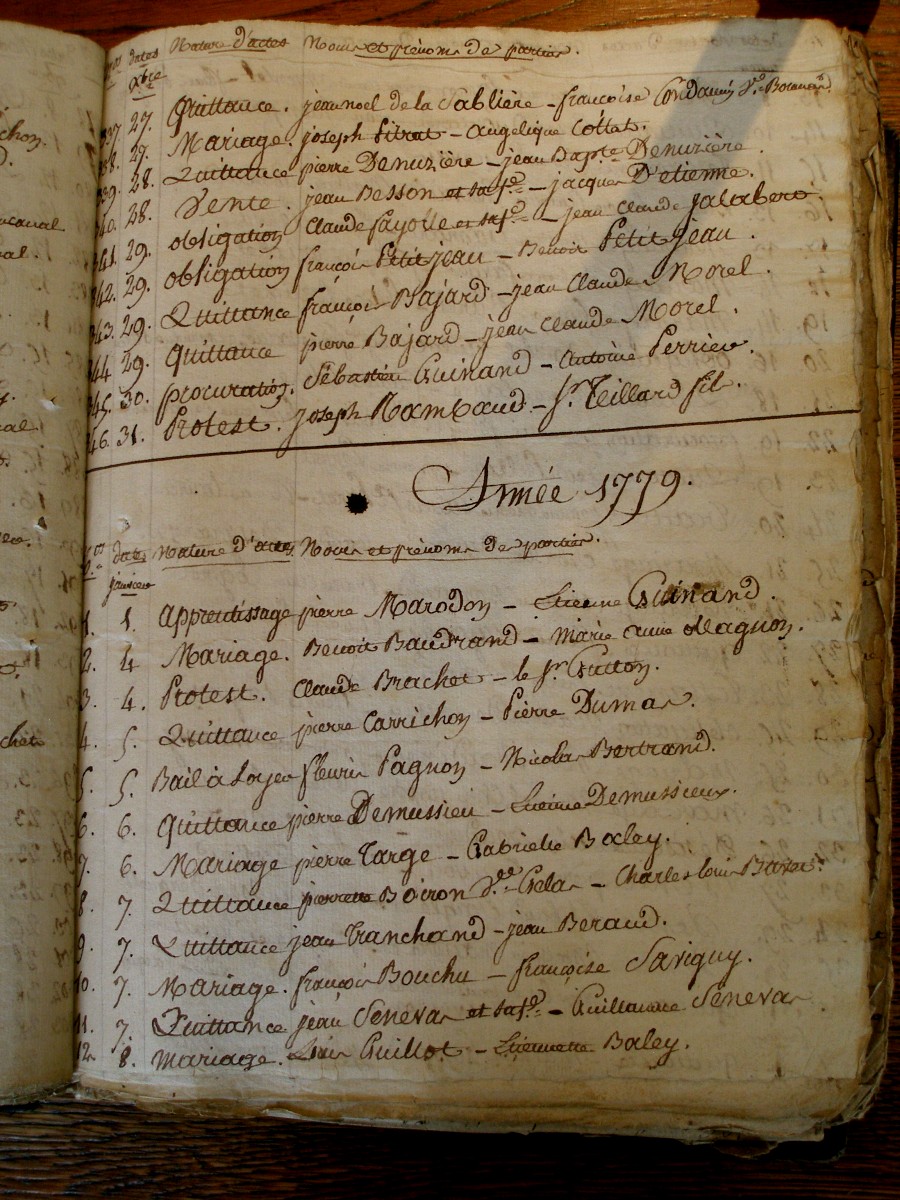 dates Nature d'actes Noms et prénoms de parties.
xbre
37 27. Quittance. jean noel de la Sablière – françoise Condamin
38. 27. Mariage. joseph Pitrat – Angelique Cottat.
39. 28. Quittance pierre Denuzière – jean Bapte Denuzière.
40. 28. Vente. jean Besson et sa fe – jacques D'etienne.
341. 29. obligation Claude fayolle et sa fe – jean Claude Jalabert.
342. 29. obligation françois Petitjean – Benoit Petitjean.
343. 29. Quittance françois Bajard – jean Claude Morel.
44 29. Quittance pierre Bajard – jean Claude Morel.
45. 30. procuration. Sébastien Guinand – Antoine Perrier.
46. 31. Protest. joseph Rambaud – Sr. Teillard fils.
Année 1779.
N.os dates Nature d'actes Noms et prénoms de parties.
janvier
1. 1. Apprentissage pierre Marodon – Etienne Guinand.
2. 4 Mariage. Benoit Baudrand – Marie Anne Magnon.
3. 4. Protest. Claude Brachet – le Sr. Gutton.
4. 5. Quittance pierre Carrichon – Pierre Dumas.
5. 5. Bail à Loyer fleuris Pagnon – Nicolas Bertrand.
6. 6. Quittance pierre Demussieu – Etienne Demussieux.
7. 6. Mariage pierre Targe – Gabrielle Baley.
8. 7. Quittance pierrette Boiron Gelas – Charles Louis
9. 7. Quittance jean Tranchand – jean Beraud.
10. 7. Mariage. françois Bouchu – françoise Savigny.
11. 7. Quittance jean Senevas et sa fe – Guillaume Senevas
12 8. Mariage. Louis Guillot – Etiennette Baley.